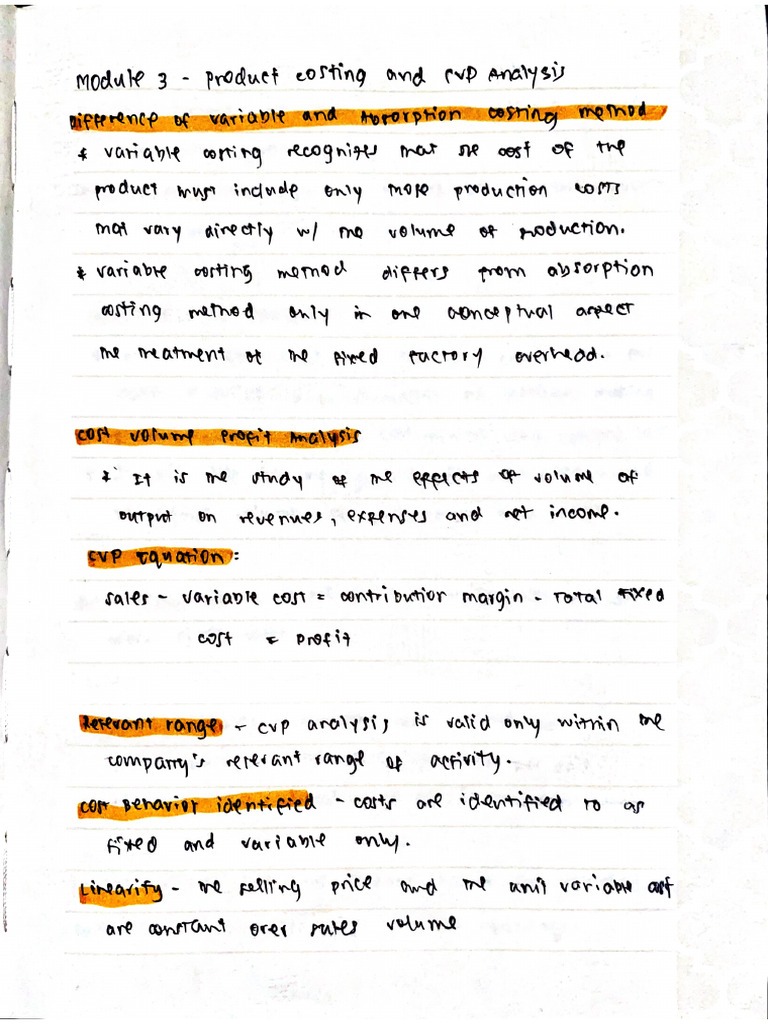 Module 3 - Product costing and CVP Analysis
Difference of variable and Absorption costing method
* variable costing recognizes that the cost of the
product must include only those production costs
that vary directly w/ the volume of production.
* variable costing method differs from absorption
costing method only in one conceptual aspect
the treatment of the fixed factory overhead.
Cost volume profit analysis
* It is the study of the effects of volume of
output on revenues, expenses and net income.
CVP Equation:
sales - variable cost = contribution margin - Total fixed
cost = profit
Relevant range - CVP analysis is valid only within the
company's relevant range of activity.
Cost Behavior identified - costs are identified to as
fixed and variable only.
Linearity - the selling price and the unit variable cost
are constant over sales volume